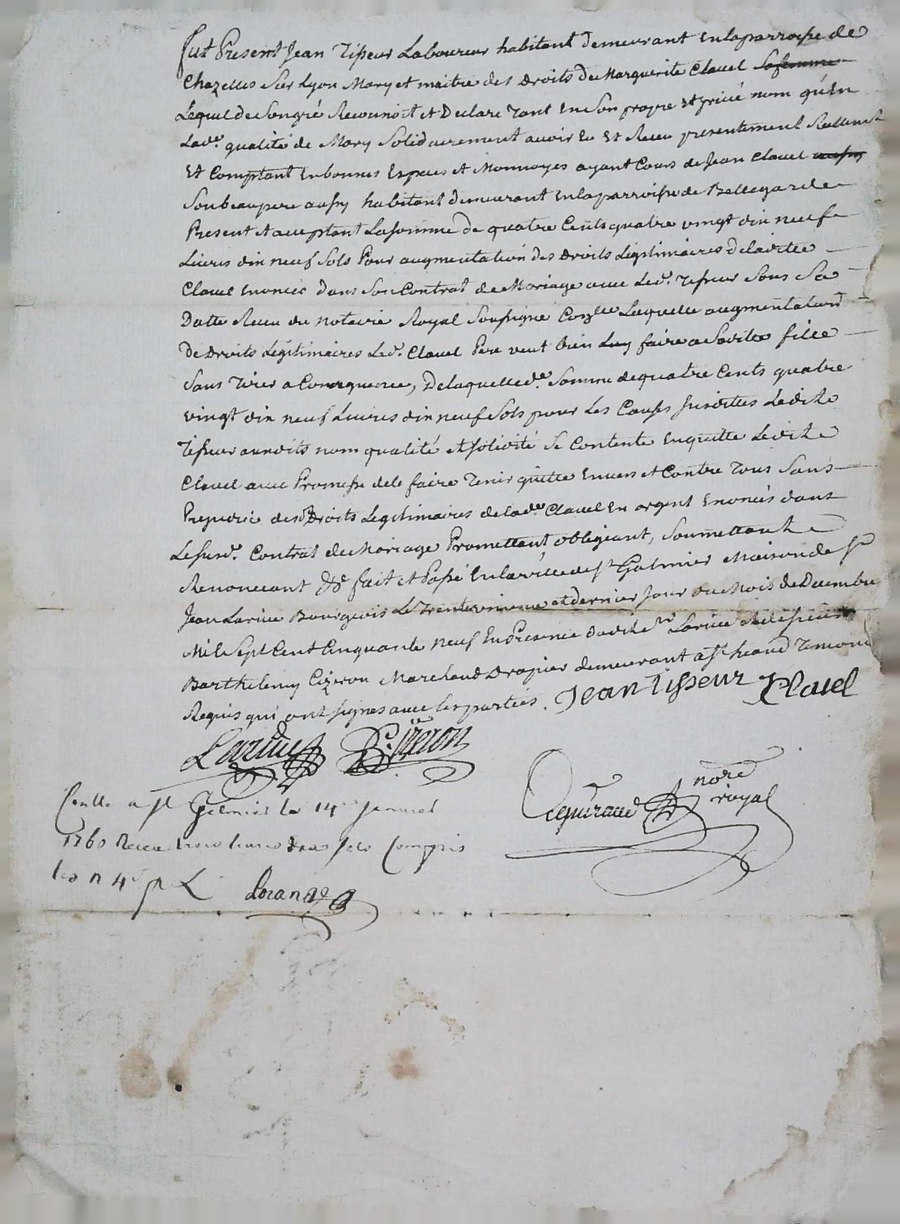 fut Present Jean Tisseur Laboureur habitant demeurant en la parroisse de
Chazelles sur Lyon Mary et maitre des Droits de Marguerite Clavel sa femme
Lequel de Son gré Reconnoit et Declare Tant En Son propre Et privé nom qu'En
Lad.e qualité de Mary Solidairement avoir Eu Et Receu presentement Reellem.t
Et Comptant En bonnes Especes et Monnoyes ayant Cours de Jean Clavel
Son beaupere aussy habitant demeurant En la parroisse de Bellegarde
Present et acceptant La Somme de quatre Cents quatre vingt dix neuf
Livres dix neuf Sols Pour augmentation des Droits Légitimaires de ladite
Clavel Enoncée dans Son Contrat de Mariage avec Led.t Tisseur Sous Sa
Datte Receu du Notaire Royal Soussigné Laquelle augmentation
de Droits Légitimaires Led.t Clavel Pere veut bien Luy faire a Sadite fille
Sans Tirer a Consequence, De laquelle d.e Somme de quatre Cents quatre
vingt dix neuf Livres dix neuf Sols pour Les Causes Susdittes Ledit
Tisseur auxdits nom qualité et solidité Se Contente En quitte Ledit
Clavel avec Promesse de le faire Tenir quitte Envers et Contre Tous Sans
Prejudice des Droits Legitimaires de lad.e Clavel En argent Enoncés dans
Le susd.t Contrat de Mariage Promettant obligeant, Soumettant
Renonceant &c fait et Passé En la ville de St Galmier Maison de Sr
Jean Larive Bourgeois Le Trente unieme et dernier Jour du Mois de Decembre
Mil Sept Cent Cinquante Neuf En Presence dudit Sr Larive et de sieur
Barthelemy Cizeron Marchand Drapier demeurant a St heand Temoins
Requis qui ont signés avec les parties. Jean Tisseur J Clavel
Larive B. Cizeron
nore
royal
Conllé a St Galmier le 14e Janvier
1760 Receu trois livres douze sols Compris
les n 4s p L